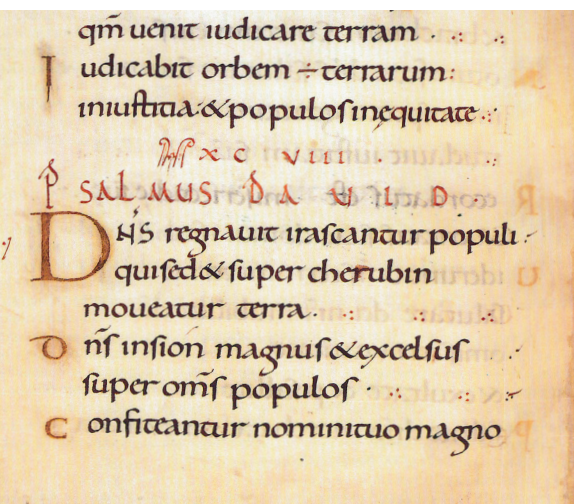 qm̄ uenit iudicare terram
Iudicabit orbem ÷ terrarum:
iniustitia·&populos inęquitate
xc viii ·
PSALMUS · DAUID
DN̄S regnauit irascantur populi
qui sed& super cherubin
moueatur terra
Dn̄s insion magnus&excelsus
super om̄s populos
Confiteantur nominituo magno